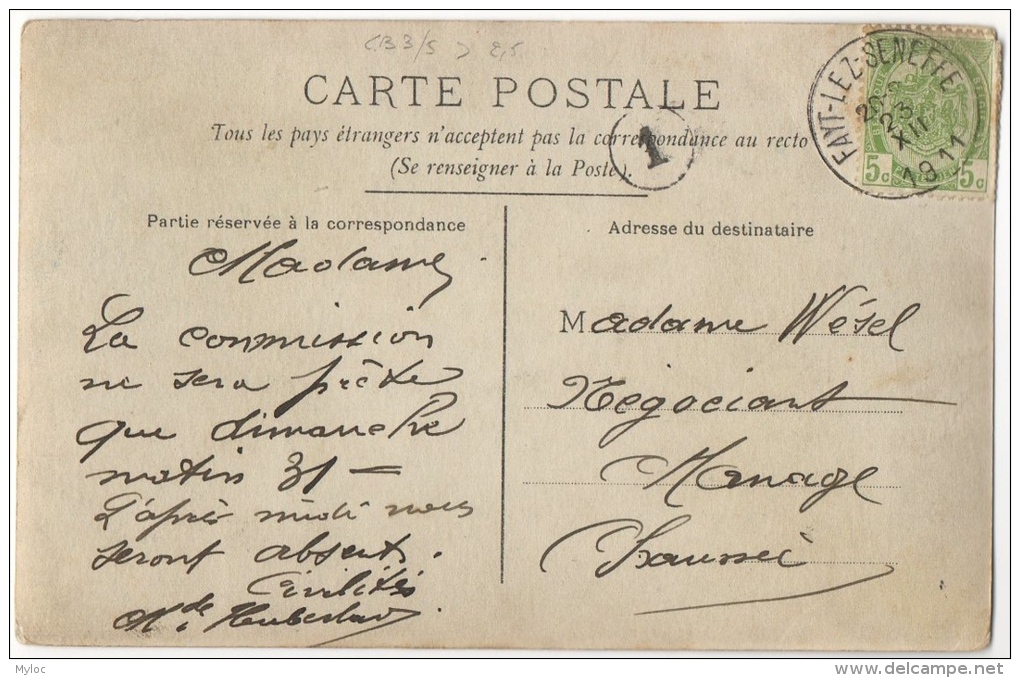 CB 3/5 > 2,5
CARTE POSTALE
Tous les pays étrangers n'acceptent pas la correspondance au recto
(Se renseigner à la Poste).
1
FAYT-LEZ-SENEFFE
23
XII
1911
5c 5c
Partie réservée à la correspondance
Madame
La commission
ne sera prête
que dimanche
matin 31 —
L'après midi nous
seront absent.
Civilités
Mde
Adresse du destinataire
Madame Wésel
Négociant
Manage
Myloc
delcampe.net